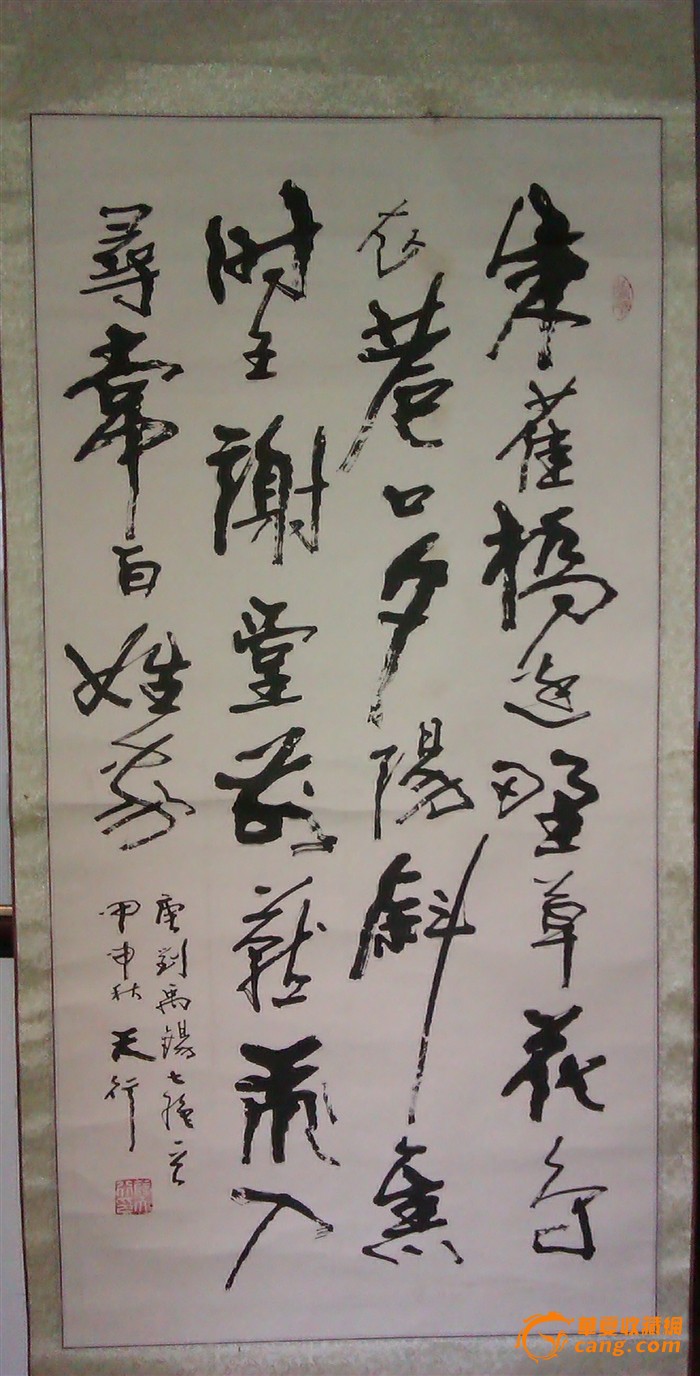 朱雀橋邊野草花烏
衣巷口夕陽斜舊
时王謝堂前燕飛入
尋常百姓家
唐劉禹錫七絕
甲申秋 天行
華夏收藏網
cang.com